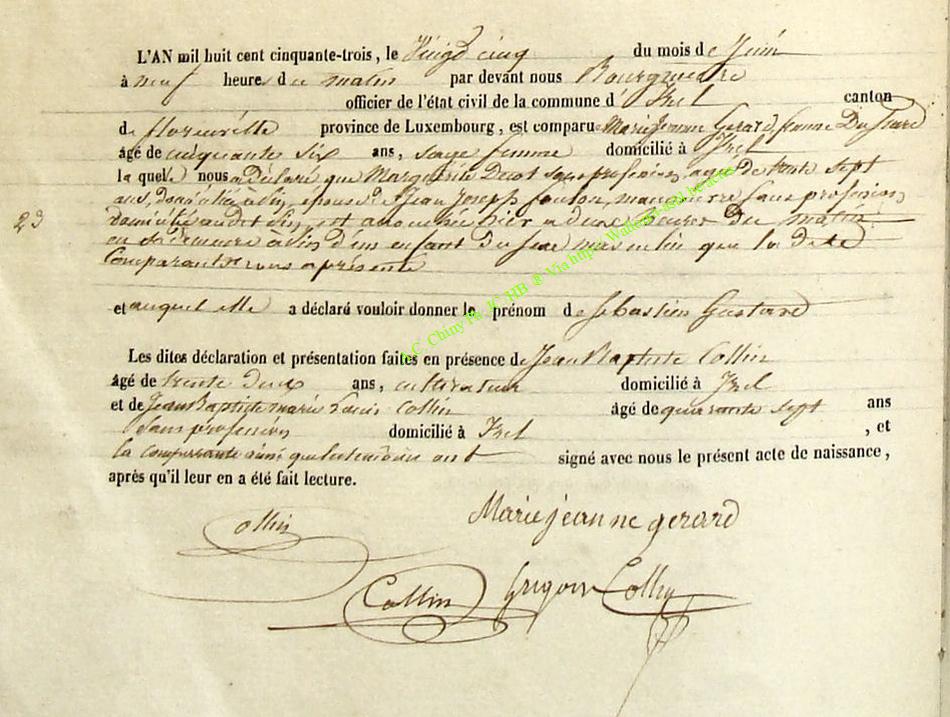 L'AN mil huit cent cinquante-trois, le Vingt cinq du mois de Juin
à neuf heures du matin par devant nous Bourgmestre
officier de l'état civil de la commune d'Izel canton
de florenville province de Luxembourg, est comparu Marie Jeanne Gerard femme
âgé de cinquante six ans, sage femme domicilié à Izel
la quelle nous a déclaré que Marguerite sans profession, agée de trente sept
ans, épouse de Jean Joseph sans profession,
et accouchée hier a deux heures du matin
en sa demeure d'un enfant du sexe masculin que la dite
Comparante nous a présenté
23
et auquel elle a déclaré vouloir donner le prénom de Sebastien Gustave
Les dites déclaration et présentation faites en présence de Jean Baptiste Collin
âgé de trente deux ans, cultivateur domicilié à Izel
et de Jean Baptiste marie Louis Collin âgé de quarante sept ans
sans profession domicilié à Izel , et
la Comparante ainsi que les témoins ont signé avec nous le présent acte de naissance,
après qu'il leur en a été fait lecture.
Collin Marie jeanne gerard
Collin Grigoir Collin
A.C. Chiny Ph. JC HB ® Via http